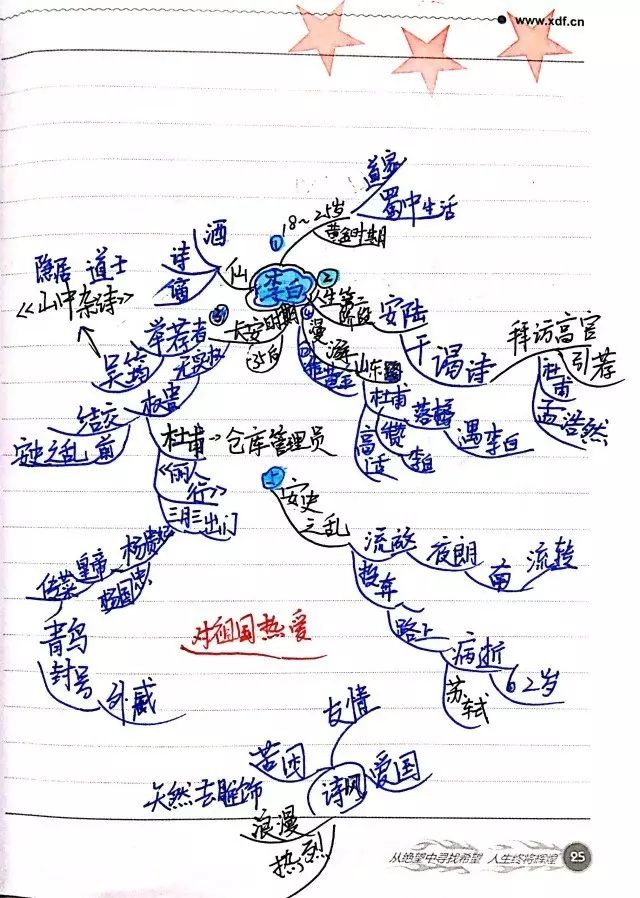 www.xdf.cn
道家
蜀中生活
18~25岁
黄金时期
①
酒
诗
仙
李白
②
人生第二
阶段
安陆
干谒诗
拜访高官
引荐
杜甫
孟浩然
隐居 道士
《山中杂诗》
吴筠
举荐者
无实权
③
长安时期
35后
权贵
结交
安史之乱 前
杜甫→仓库管理员
《丽人行》
三月三出门
杨贵妃
皇帝
杨国忠
传菜
青鸟
封号
外戚
④
漫游
山东
杜甫
高适
李白
落魄
遇李白
⑤
安史
之乱
流放
夜朗
南
流转
投奔
路上
病逝
62岁
苏轼
对祖国热爱
友情
苦困
诗风
爱国
天然去雕饰
浪漫
热烈
从绝望中寻找希望 人生终将辉煌
25